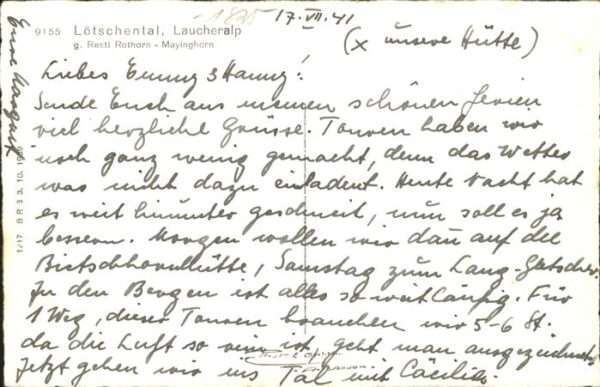 1835
17.VII.41
9155 Lötschental, Laucheralp
g. Restl Rothorn - Mayinghorn
(x unsere Hütte)
Liebes Emmy & Hanny!
Sende Euch aus meinen schönen Ferien
viel herzliche Grüsse. Touren haben wir
noch ganz wenig gemacht, denn das Wetter
war nicht dazu einladent. Heute Nacht hat
es weit hinunter geschneit, nun soll es ja
bessern. Morgen wollen wir dan auf die
Bietschhornhütte, Samstag zum Lang-Gletscher.
In den Bergen ist alles so weitläufig. Für
1 Weg, dieser Touren brauchen wir 5-6 St.
da die Luft so rein ist, geht man ausgezeichnet.
Jetzt gehen wir ins Tal mit Cäcilia.
Eure Margrit
1/17 BR 3 3. 10. 19